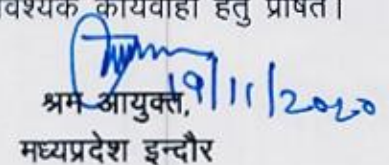 वश्यक कार्यवाही हेतु प्रेषित।
19/11/2020
श्रम आयुक्त,
मध्यप्रदेश इन्दौर